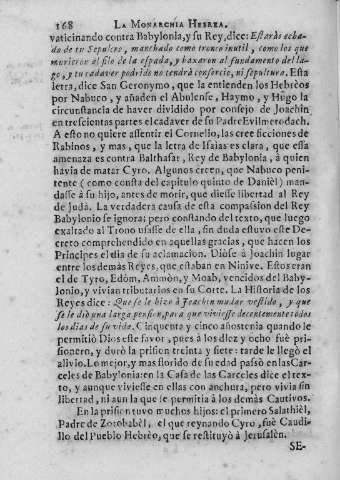 168 LA MONARCHIA HEBREA.
vaticinando contra Babylonia, y su Rey, dice: Estaràs echa-
do de tu Sepulcro, manchado como tronco inutil, como los que
murieron al filo de la espada, y baxaron al fundamento del la-
go, y tu cadaver podrido no tendrà consorcio, ni sepultura. Esta
letra, dice San Geronymo, que la entienden los Hebrèos
por Nabuco, y añaden el Abulense, Haymo, y Hugo la
circunstancia de haver dividido por consejo de Joachìn
en trescientas partes el cadaver de su Padre Evilmerodach.
A esto no quiere assentir el Cornelio, las cree ficciones de
Rabinos, y mas, que la letra de Isaìas es clara, que essa
amenaza es contra Balthasar, Rey de Babylonia, à quien
havia de matar Cyro. Algunos creen, que Nabuco peni-
tente (como consta del capitulo quinto de Danièl) man-
dasse à su hijo, antes de morir, que diesse libertad al Rey
de Judà. La verdadera causa de esta compassion del Rey
Babylonio se ignora; pero constando del texto, que luego
exaltado al Trono usasse de ella, sin duda estuvo este De-
creto comprehendido en aquellas gracias, que hacen los
Principes el dia de su aclamacion. Diòse à Joachìn lugar
entre los demàs Reyes, que estaban en Ninive. Estos eran
el de Tyro, Edòm, Ammòn, y Moab, vencidos del Baby-
lonio, y vivian tributarios en su Corte. La Historia de los
Reyes dice: Que se le hizo à Joachìn mudar vestido, y que
se le diò una larga pension, para que viviesse decentemente todos
los dias de su vida. Cinquenta y cinco años tenia quando le
permitiò Dios este favor, pues à los diez y ocho fuè pri-
sionero, y durò la prision treinta y siete: tarde le llegò el
alivio. Lo mejor, y mas florido de su edad passò en las Car-
celes de Babylonia: en la Casa de las Carceles dice el tex-
to, y aunque viviesse en ellas con anchura, pero vivia sin
libertad, ni aun la que se permitia à los demàs Cautivos.
En la prision tuvo muchos hijos: el primero Salathièl,
Padre de Zorobabèl, el que reynando Cyro, fuè Caudi-
llo del Pueblo Hebrèo, que se restituyò à Jerusalèn.
SE-